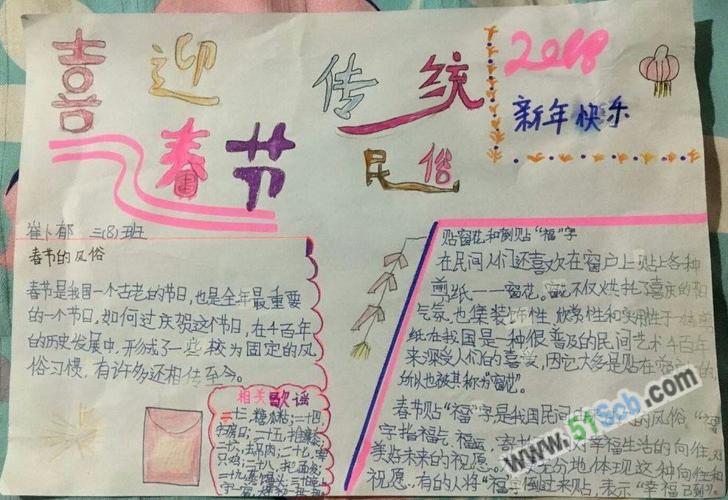 喜迎
春节
传统
民俗
2018
新年快乐
崔卜郁 三(8)班
春节的风俗
春节是我国一个古老的节日,也是全年最重要
的一个节日,如何过庆贺这个节日,在4百年
的历史发展中,形成了一些校为固定的风
俗习惯,有许多还相传至今。
相关歌谣
二十三,糖水粘;二十四
扫房日;二十五,
二十六,去吊肉;二十七,宰
只鸡;二十八,把面发;
二十九,蒸馒头;三十晚上
贴窗花和倒贴“福”字
在民间人们还喜欢在窗户上贴上各种
剪纸——窗花。窗花不仅烘托了喜庆的节日
气氛,也集装饰性,欣赏性和实用性于一体剪
纸在我国是一种很普及的民间艺术4百年
来深受人们的喜爱,因它大多是贴在窗户上的
所以也被其称为“窗花”。
春节贴“福”字是我国民间的风俗“福”
字指福气,福运,对幸福生活的向往,对
美好未来的祝愿。地体现这种向往和
祝愿,有的人将“福”字倒过来贴,表示“幸福已到”
www.51Scb.com